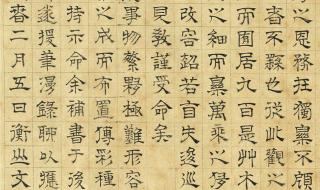 之恩務在獨樂不顧
者不繇也從此觀之
而囿居九百是艸木
之細而樂萬乘之侈
改容超若自失逡巡
見教謹受命矣
事物繁夥極難形容
之成而布置傅彩種
持示命余補書于後
遂援筆漫錄聊以應
春二月五日衡山文